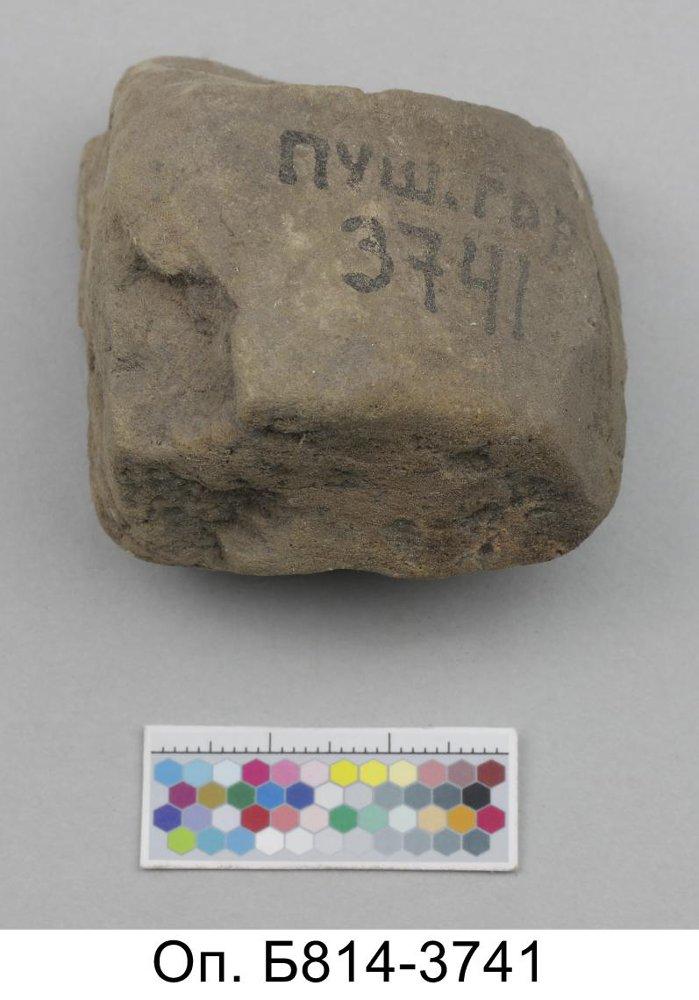 ПУШ.ГОР
3741
Оп. Б814-3741